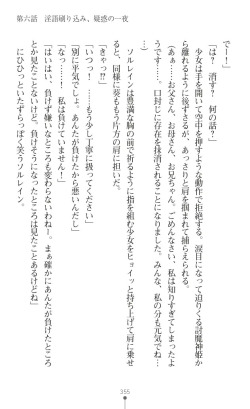 第六話　淫語刷り込み、疑惑の一夜
でー！」
「は？　消す？　何の話？」
　少女は手を開いて空中を押すような動作で拒絶する。涙目になって迫りくる討魔神姫か
ら離れるように後ずさるが、あっさりと肩を掴まれて捕らえられる。
「あぁっ……お父さん、お母さん、お兄ちゃん、ごめんなさい、私は知りすぎてしまった
ようです……。口封じに存在を抹消されることになりました。みんな、私の分も元気でね…
…きゃっ⁉」
　ソルレインは豊満な胸の前で祈るように指を組む少女をヒョイッと持ち上げて肩に乗せ
ると、同様に葵ももう片方の肩に担いだ。
「いつっ！　……もう少し丁寧に扱ってください」
「別に平気でしょ。あんたが負けたから悪いんだし」
「っ……！　私は負けていません！」
「はいはい、負けず嫌いなとこも変わんないわねー。まぁ確かにあんたが負けたところ
は見たことないけど、負けそうになったところは見たことあるけどね」
　にひひっといたずらっぽく笑うソルレイン。
355